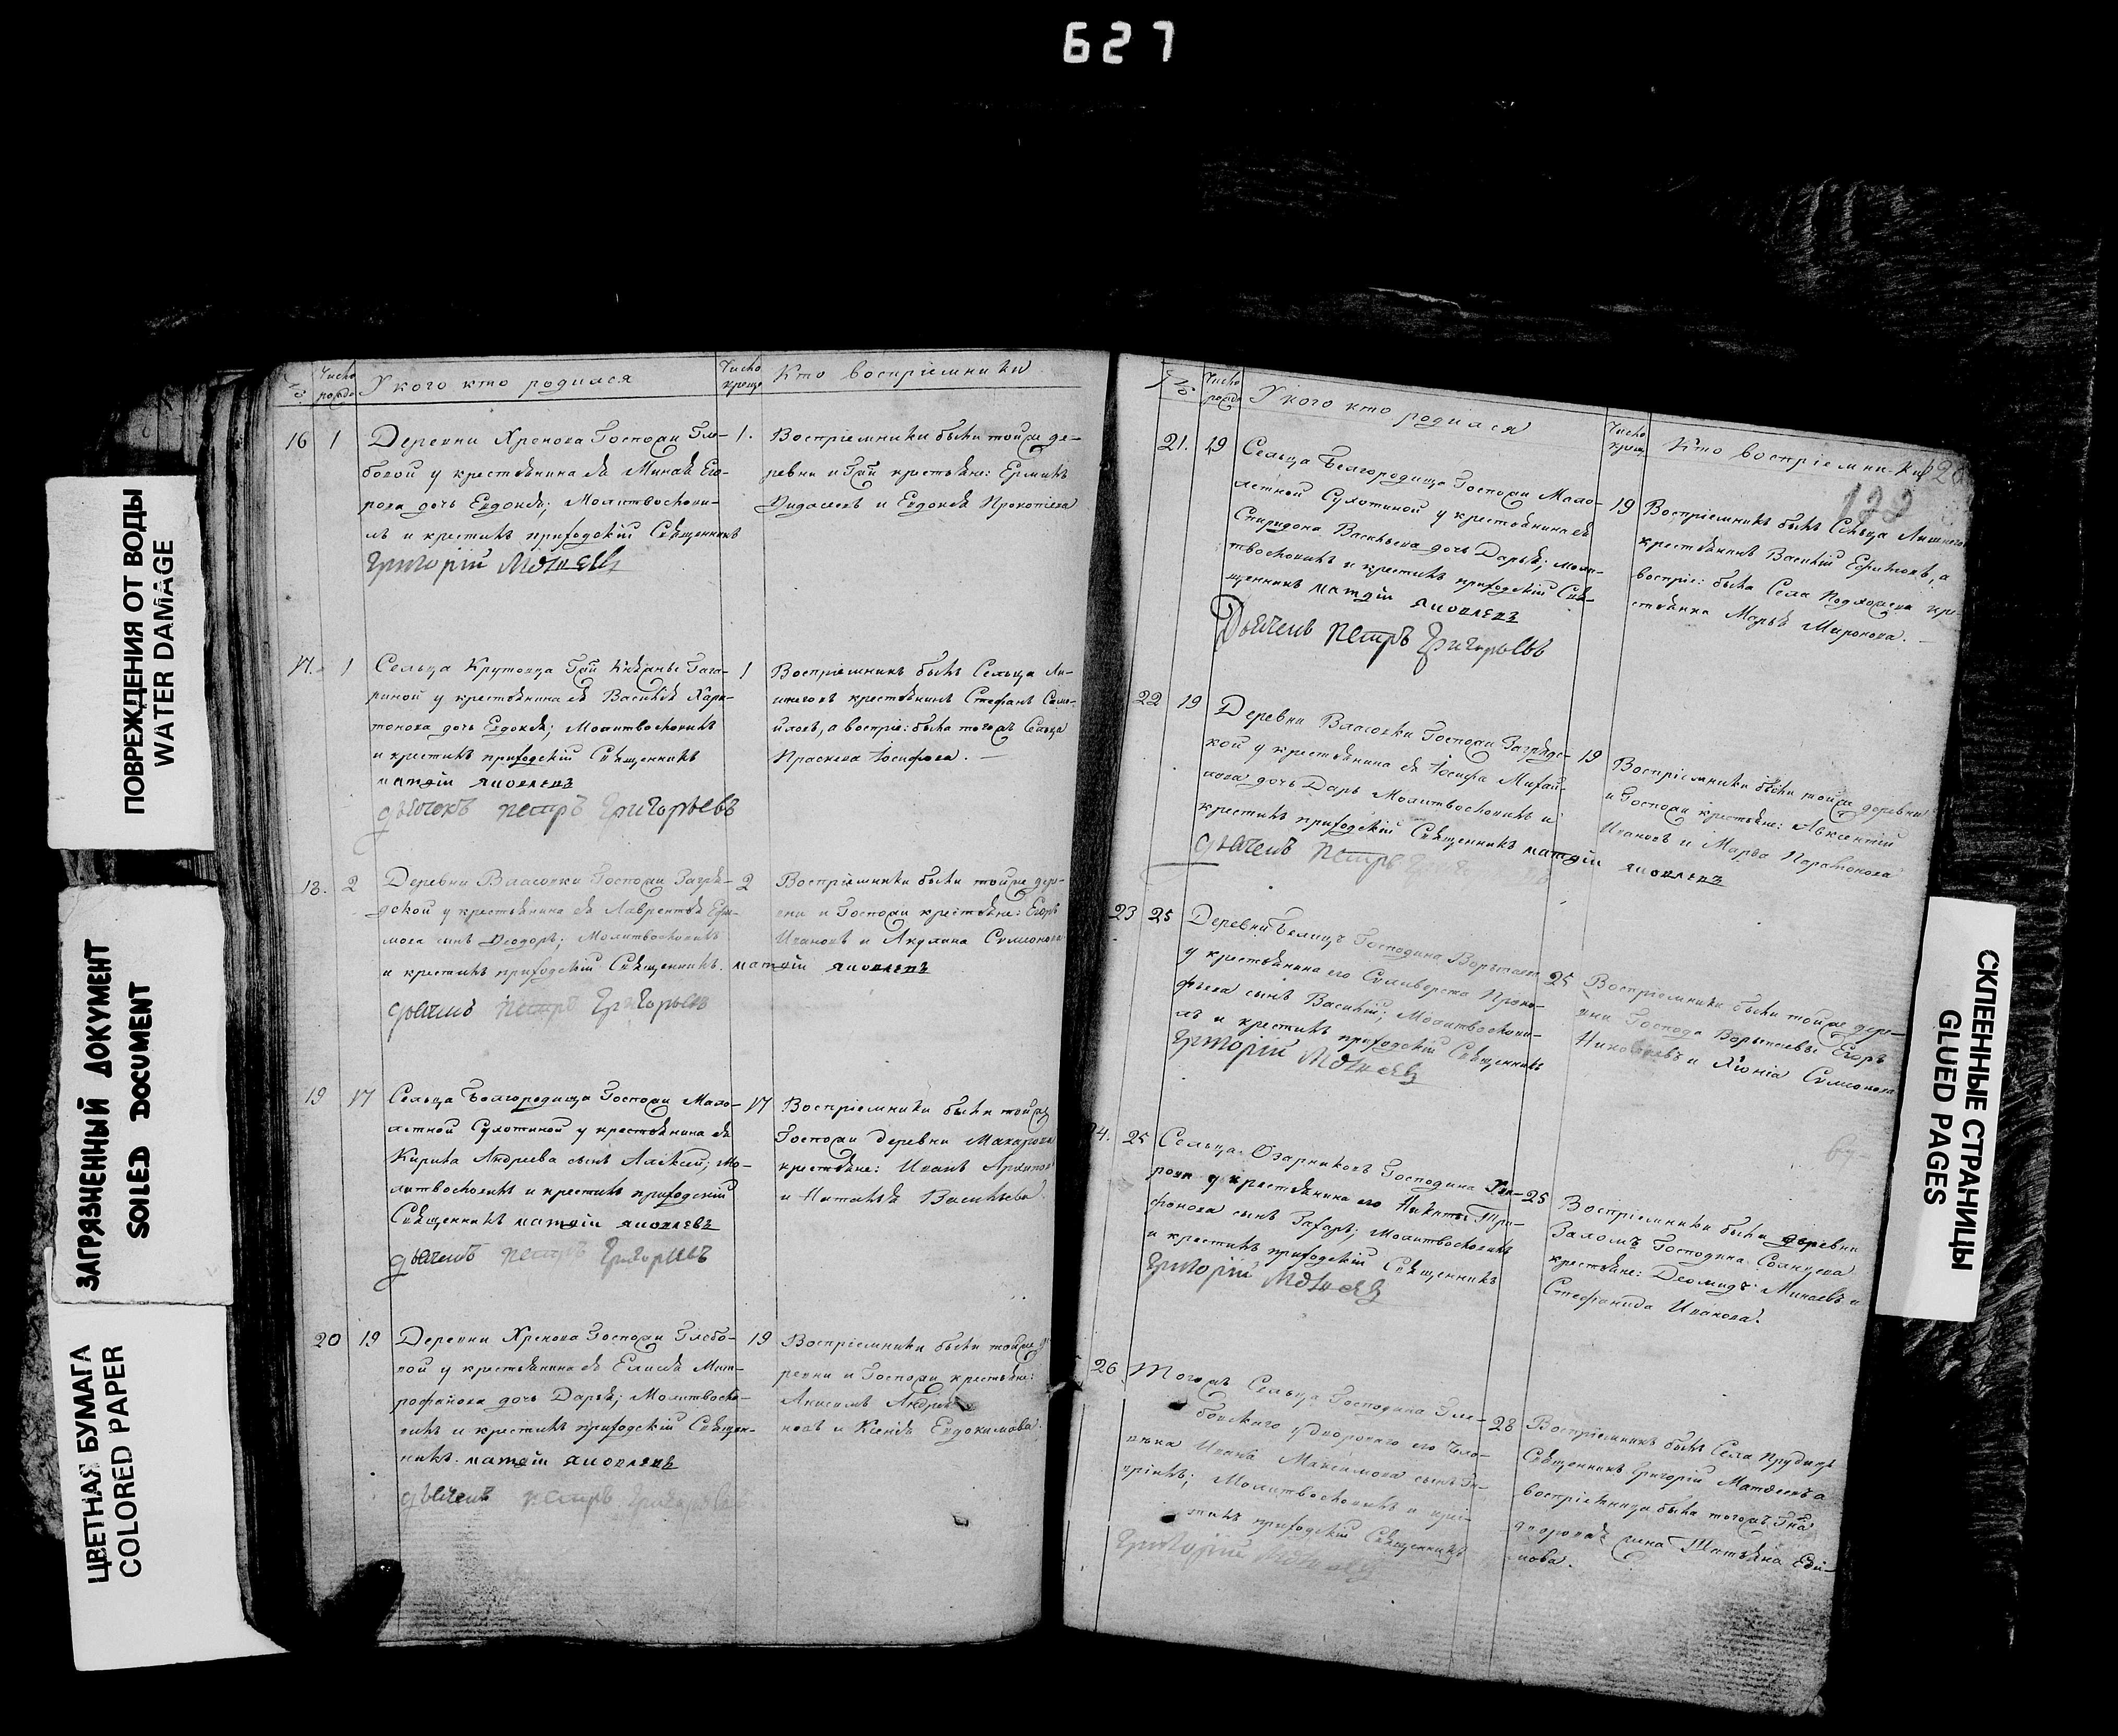 627
ПОВРЕЖДЕНИЯ ОТ ВОДЫ
WATER DAMAGE
ЗАГРЯЗНЕННЫЙ ДОКУМЕНТ
SOILED DOCUMENT
ЦВЕТНАЯ БУМАГА
COLORED PAPER
У кого кто родился
Кто воспріемники
16 1
Деревни Хренова Госпожи Гле-
бовой у крестьянина ея Миная Его-
рова дочь Евдокѣя; Молитвословилъ
и крестилъ приходскій Священникъ
Григорій
1.
Воспріемники были тойже де-
ревни и Гжи крестьяне: Ермилъ
и Евдокѣя Прокопіева
17. 1
Сельца Крутовца Гжи Княжны Гага-
риной у крестьянина ея Василія Хари-
тонова дочь Евдокѣя; Молитвословилъ
и крестилъ приходскій Священникъ
матѳій яковлевъ
дьячекъ петръ Григорьевъ
1
Воспріемникъ былъ Сельца
крестьянинъ Стефанъ
а воспріе: была тогожъ Сельца
Прасковья Іосифова.
18. 2
Деревни Власовки Госпожи Загря-
дской у крестьянина ея Лаврентья Ефи-
мова сынъ Ѳеодоръ; Молитвословилъ
и крестилъ приходскій Священникъ. матѳій яковлевъ
дьячекъ петръ Григорьевъ
2
Воспріемники были тойже дер-
вни и Госпожи крестьяне: Егоръ
Ивановъ и Акулина Симеонова
19 17
Сельца Белгородища Госпожи Мало-
летной Сухотиной у крестьянина ея
Кирила Андреева сынъ Алексѣй; Мо-
литвословилъ и крестилъ приходскій
Священникъ матѳій яковлевъ
дьячекъ петръ Григорьевъ
17
Воспріемники были тойже
Госпожи деревни Макарова
крестьяне: Иванъ Архипов
и Наталья Васильева.
20 19
Деревни Хренова Госпожи Глебо-
вой у крестьянина ея Елисѣя Мит-
рофанова дочь Дарья; Молитвосло-
вилъ и крестилъ приходскій Священ-
никъ. матѳій яковлевъ
дьячекъ петръ Григорьевъ
19
Воспріемники были тойже д
ревни и Госпожи крестьяне:
Анисимъ
и Ксенѣя Евдокимова.
У кого кто родился
Кто воспріемники
122
21. 19
Сельца Белгородища Госпожи Мало-
летной Сухотиной у крестьянина ея
Спиридона Васильева дочь Дарья; моли-
твословилъ и крестилъ приходскій Свя-
щенникъ матѳій яковлевъ
Дьячекъ петръ Григорьевъ
19
Воспріемникъ былъ Сельца
крестьянинъ Василій Ефимовъ, а
воспріе: была Села кре-
стьянка Марья Миронова.
22 19
Деревни Власовки Госпожи Загрядс-
кой у крестьянина ея Іосифа Михай-
лова дочь Дарья Молитвословилъ и
крестилъ приходскій Священникъ матѳій яковлевъ
дьячекъ петръ
19
Воспріемники были тойже деревни
и Госпожи крестьяне: Авксентій
Ивановъ и Марѳа Парамонова
23 25
Деревни Белищъ Господина
у крестьянина его Сильверста Проко-
фьева сынъ Василій; Молитвослови-
лъ и крестилъ приходскій Священникъ
Григорій
25
Воспріемники были тойже дере-
вни Господъ Егоръ
Николаевъ и Симеонова
25
Сельца Озарниковъ Господина
у крестьянина его Никиты Три-
фонова сынъ Захаръ; Молитвословилъ
и крестилъ приходскій Священникъ
Григорій
25
Воспріемники были деревни
Заломъ Господина
крестьяне: Деомидъ Минаевъ и
Стефанида Иванова.
26
Тогожъ Сельца Господина Гле-
бовскаго у двороваго его чело-
вѣка Ивана Максимова сынъ
Молитвословилъ и кре-
стилъ приходскій Священникъ
Григорій
28
Воспріемникъ былъ Села Прудищъ
Священникъ Григорій Матѳеевъ а
воспріемница была тогожъ Гна
дворовая Татьяна
СКЛЕЕННЫЕ СТРАНИЦЫ
GLUED PAGES